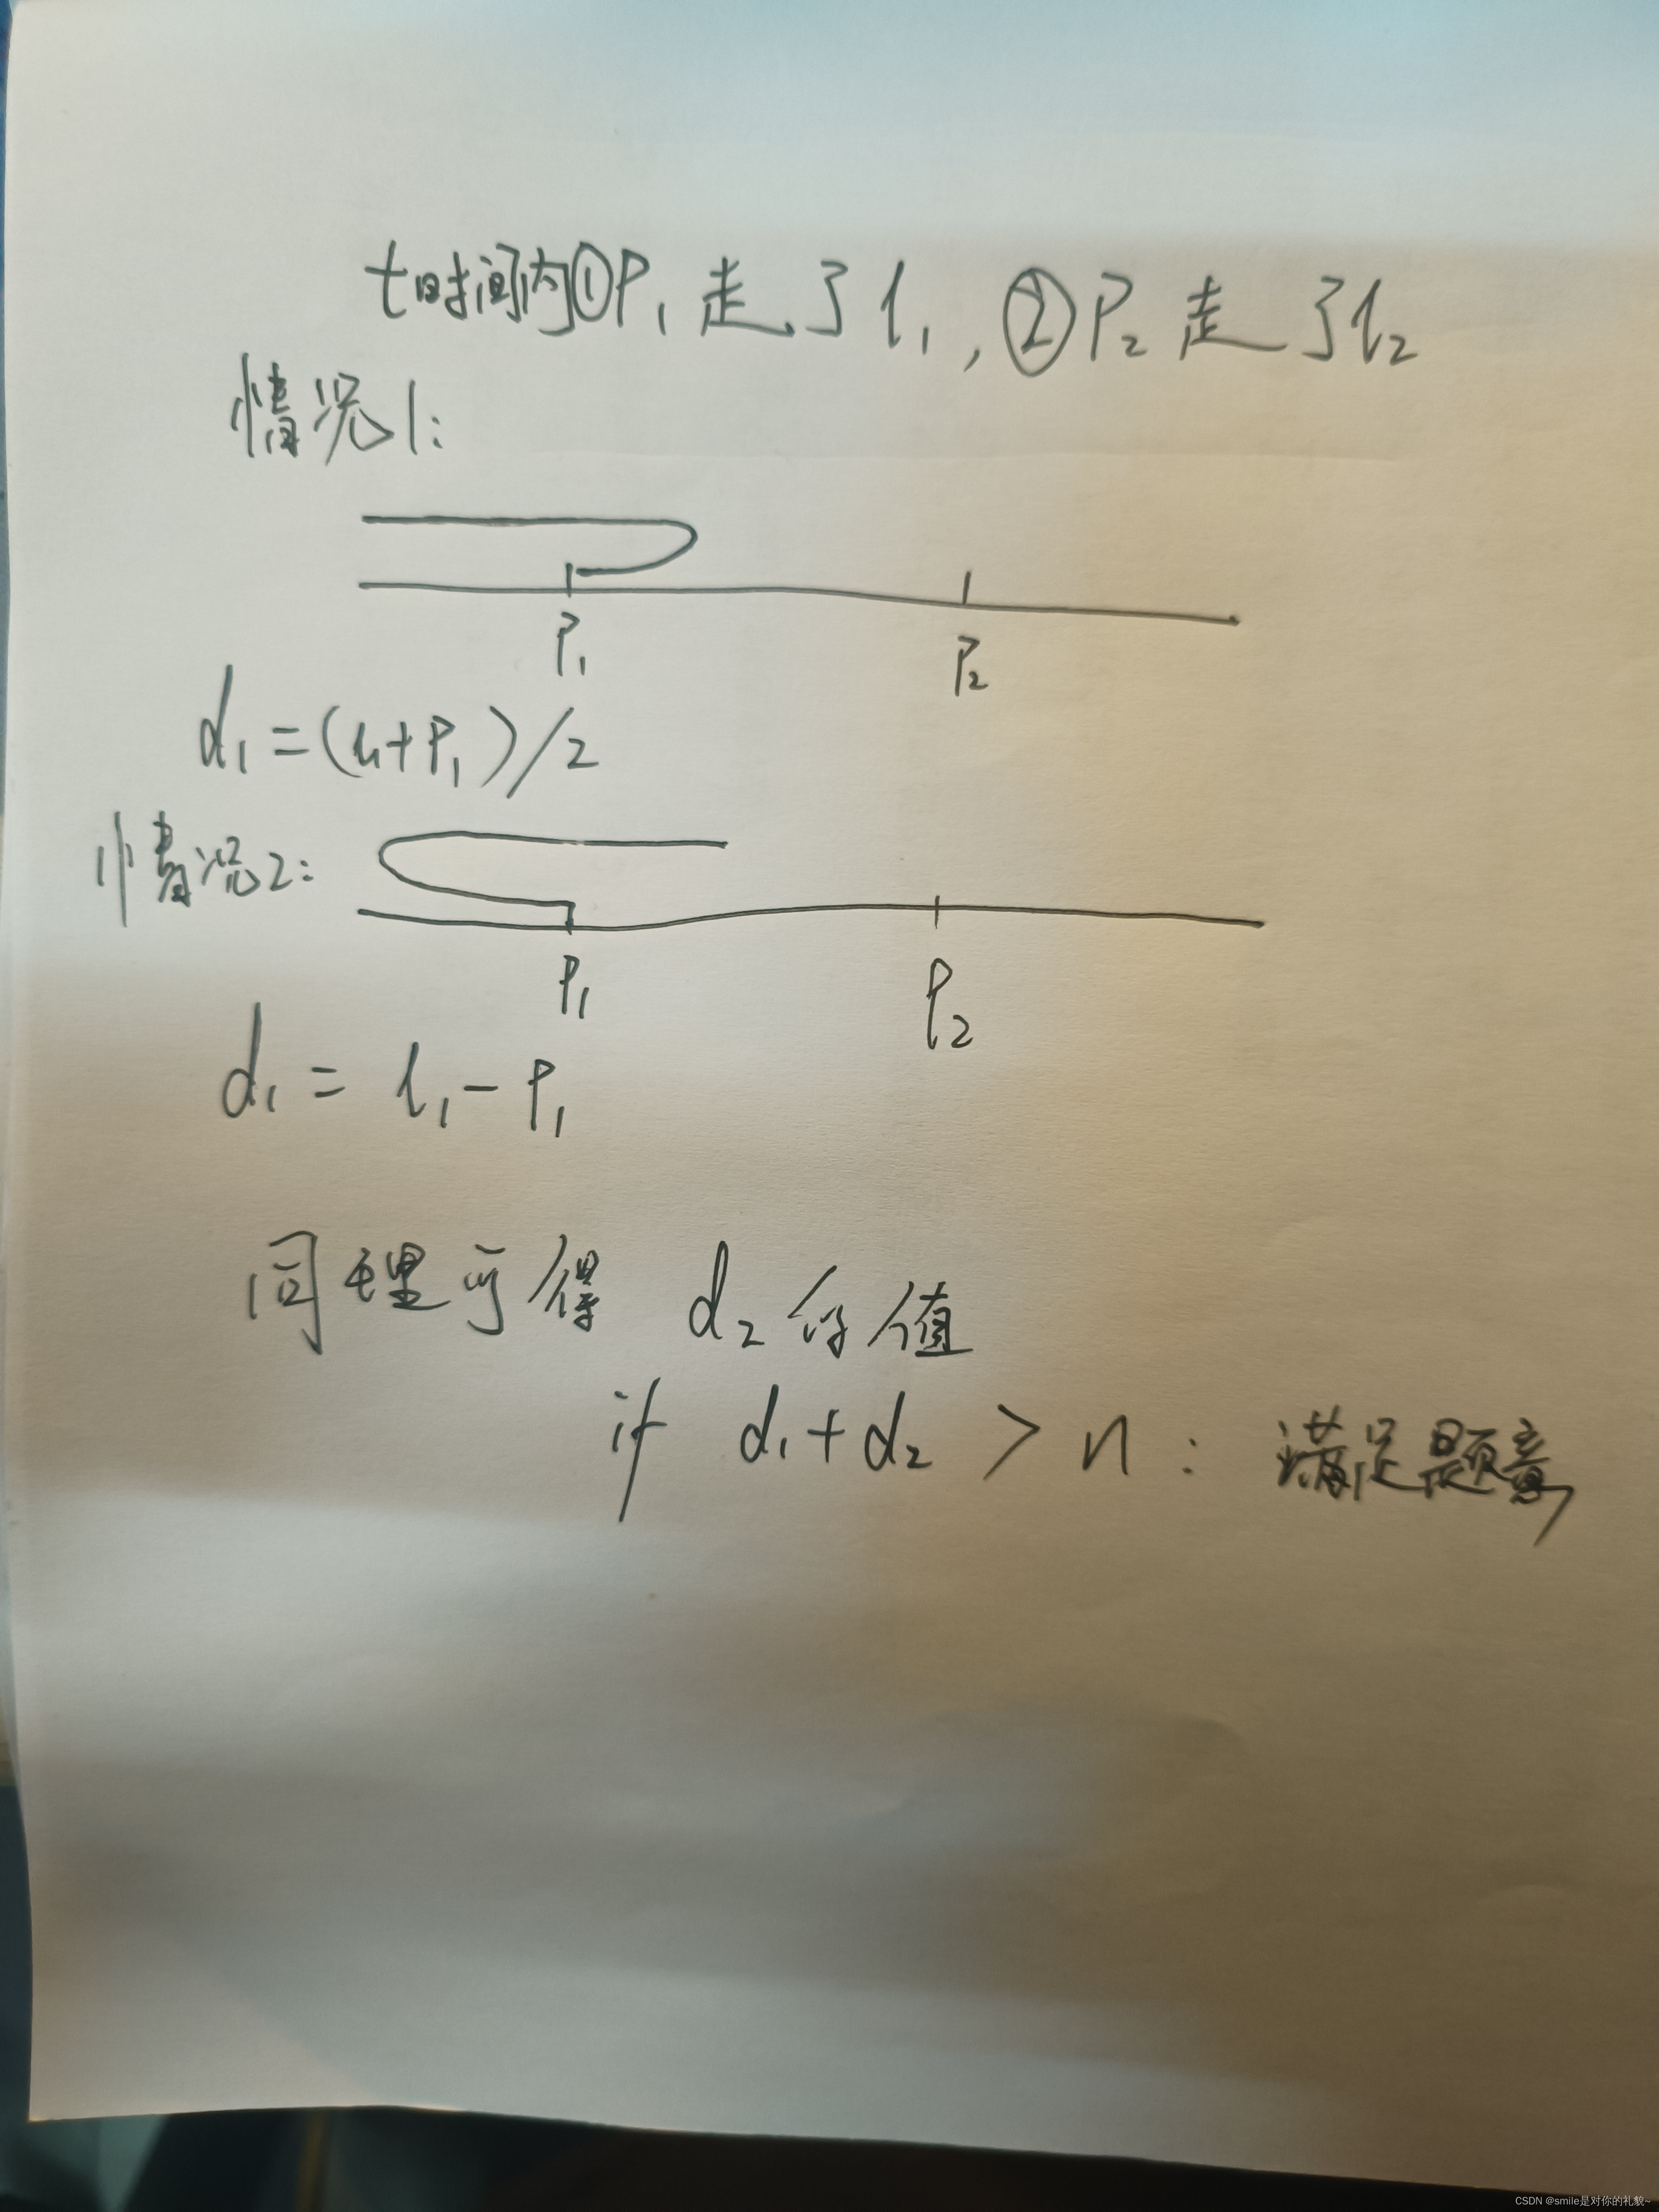 t时间内①P₁走了l₁,②P₂走了l₂
情况1:
P₁ P₂
d₁=(l₁+P₁)/2
情况2:
P₁ P₂
d₁=l₁-P₁
同理可得 d₂的值
if d₁+d₂>n:满足题意
CSDN @smile是对你的礼貌~